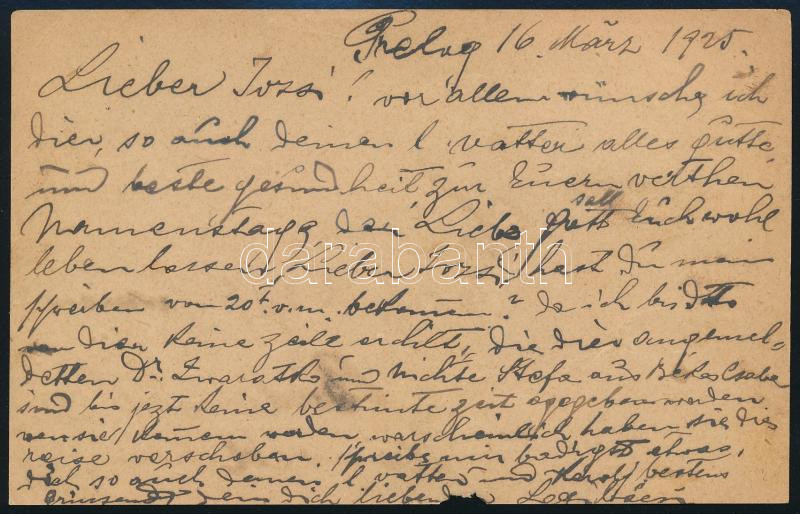 Prelog 16 März 1925.
Lieber Jossi! vor allem wünsche ich
dier, so auch deinen l. vatter alles gutte
und beste gesundheit zur Euern werthen
Namenstage der Liebe gott soll Euch wohl
leben lassen, Lieber Jossi! hast du mein
schreiben vom 20t. v.m. bekommen? da ich bis dtto
von dier keine zeile erhilt, die dier angemel-
detten Dr. und nichte Stefa aus Békes Csaba
sind bis jezt keine bestimte zeit agegeben worden
wen sie komen werden, warscheinlich haben sie die
reise verschoben. schreibe mir etwas,
dich so auch deinen l vatter und bestens
grüssend dein dich liebender
darabanth